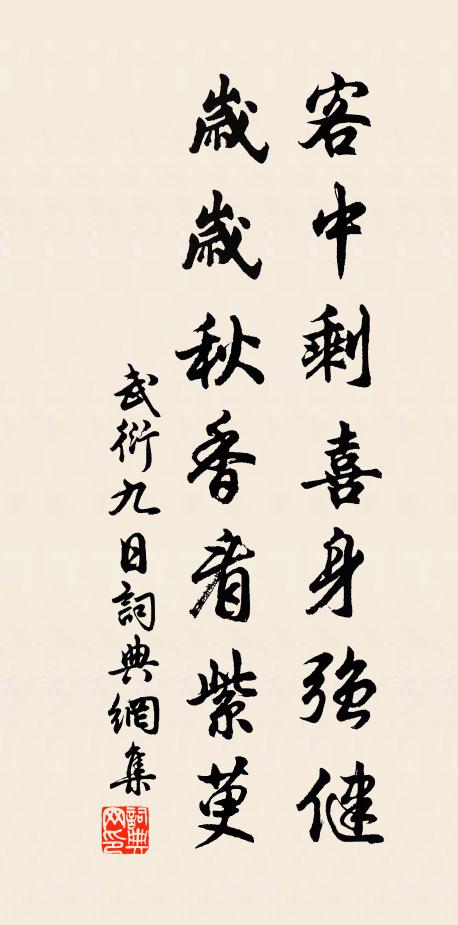 客中剩喜身強健
歲歲秋香看紫萸
武衍九日詞典網集
詞典網印